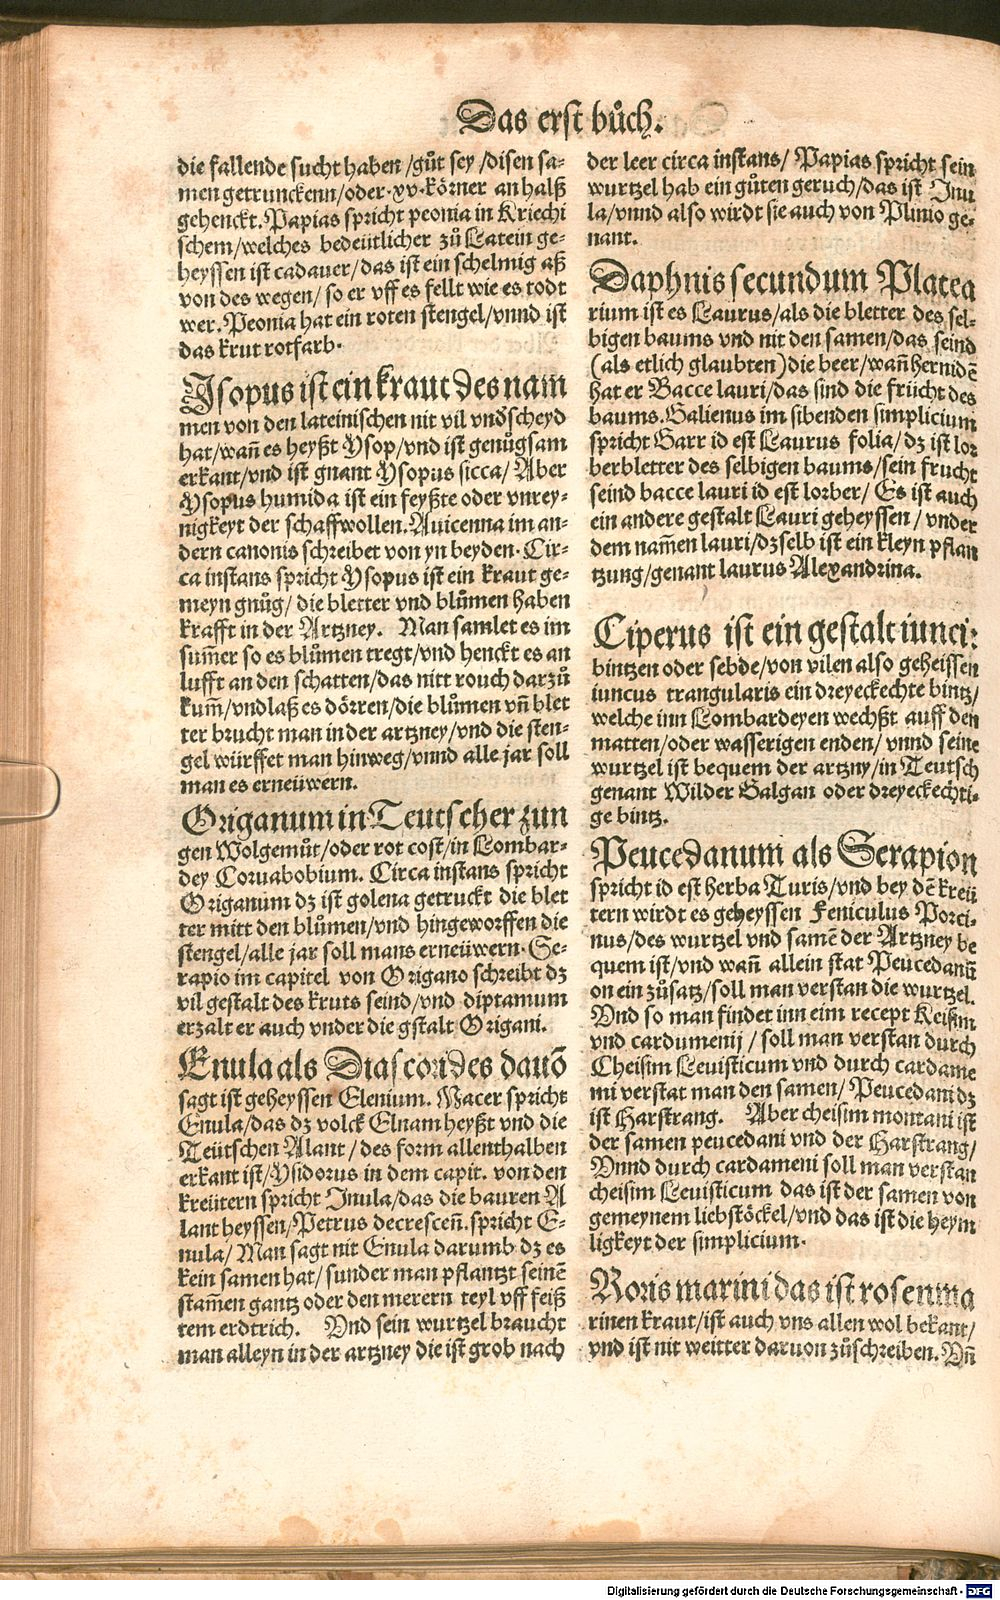 Das erst bůch.
die fallende sucht haben /gůt sey /disen sa-
men getrunckenn/oder·xv·körner an halß
gehenckt. Papias spricht peonia in Kriechi
schem/welches bedeütlicher zů Latein ge-
heyssen ist cadauer/das ist ein schelmig aß
von des wegen/ so er vff es fellt wie es todt
wer. Peonia hat ein roten stengel/vnnd ist
das krut rotfarb·
Isopus ist ein kraut des nam
men von den lateinischen nit vil vnd̄scheyd
hat/wañ es heyßt Ysop/vnd ist genůgsam
erkant/vnd ist gnant Ysopus sicca/ Aber
Ysopus humida ist ein feyßte oder vnrey-
nigkeyt der schaffwollen. Auicenna im an-
dern canonis schreibet von yn beyden· Cir-
ca instans spricht Ysopus ist ein kraut ge-
meyn gnůg/ die bletter vnd blůmen haben
krafft in der Artzney. Man samlet es im
sum̃er so es blůmen tregt/vnd henckt es an
lufft an den schatten/das nitt rouch darzů
kum̃/vnd laß es dörren/die blůmen vñ blet
ter brucht man in der artzney/vnd die sten-
gel würffet man hinweg/vnnd alle jar soll
man es erneüwern.
Origanum in Teutscher zun
gen Wolgemůt/oder rot cost/in Lombar-
dey Coruabobium. Circa instans spricht
Origanum dz ist golena getruckt die blet
ter mitt den blůmen/vnd hingeworffen die
stengel/alle jar soll mans erneüwern· Se-
rapio im capitel von Origano schreibt dz
vil gestalt des kruts seind/vnd diptamum
erzalt er auch vnder die gstalt Origani.
Enula als Diascorides dauõ
sagt ist geheyssen Elenium. Macer spricht
Enula/das dz volck Elnam heyßt vnd die
Teütschen Alant /des form allenthalben
erkant ist/Ysidorus in dem capit. von den
kreütern spricht Inula/das die bauren A
lant heyssen/Petrus decresceñ. spricht E-
nula/ Man sagt nit Enula darumb dz es
kein samen hat/sunder man pflantzt seinē
stam̃en gantz oder den merern teyl vff feiß
tem erdtrich. Vnd sein wurtzel braucht
man alleyn in der artzney die ist grob nach
der leer circa instans/ Papias spricht sein
wurtzel hab ein gůten geruch/das ist Inu
la/vnnd also wirdt sie auch von Plinio ge-
nant.
Daphnis secundum Platea
rium ist es Laurus/als die bletter des sel-
bigen baums vnd nit den samen/das seind
(als etlich glaubten)die beer/wañ hernidē
hat er Bacce lauri/das sind die frücht des
baums. Galienus im sibenden simplicium
spricht Garr id est Laurus folia/dz ist lor
berbletter des selbigen baums/sein frucht
seind bacce lauri id est lorber/ Es ist auch
ein andere gestalt Lauri geheyssen / vnder
dem nam̃en lauri/dzselb ist ein kleyn pflan
tzung/genant laurus Alexandrina.
Ciperus ist ein gestalt iunci:
bintzen oder sebde/von vilen also geheissen
iuncus trangularis ein dreyeckechte bintz/
welche inn Lombardeyen wechßt auff den
matten/oder wasserigen enden/ vnnd seine
wurtzel ist bequem der artzny/in Teutsch
genant Wilder Galgan oder dreyeckechti-
ge bintz.
Peucedanum als Serapion
spricht id est herba Turis/vnd bey dē kreü
tern wirdt es geheyssen Feniculus Porci-
nus/des wurtzel vnd samē der Artzney be
quem ist/vnd wañ allein stat Peucedanū
on ein zůsatz/soll man verstan die wurtzel.
Vnd so man findet inn eim recept Keisim
vnd cardumenij / soll man verstan durch
Cheisim Leuisticum vnd durch cardame
mi verstat man den samen/ Peucedani dz
ist Harstrang. Aber cheisim montani ist
der samen peucedani vnd der Harstrang/
Vnnd durch cardameni soll man verstan
cheisim Leuisticum das ist der samen von
gemeynem liebstöckel/vnd das ist die heym
ligkeyt der simplicium·
Roris marini das ist rosenma
rinen kraut/ist auch vns allen wol bekant/
vnd ist nit weitter daruon zůschreiben. Vñ
Digitalisierung gefördert durch die Deutsche Forschungsgemeinschaft - DFG